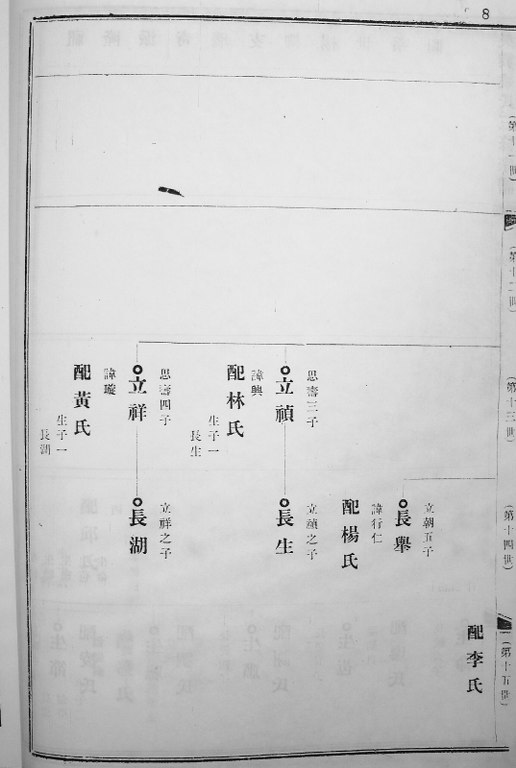 8
(第十一世)
(第十二世)
(第十三世)
(第十四世)
(第十五世)
配李氏
立朝五子
長舉
諱行仁
配楊氏
思壽三子
立禎
諱興
配林氏
生子一
長生
立禎之子
長生
思壽四子
立祥
諱璇
配黃氏
生子一
長湖
立祥之子
長湖